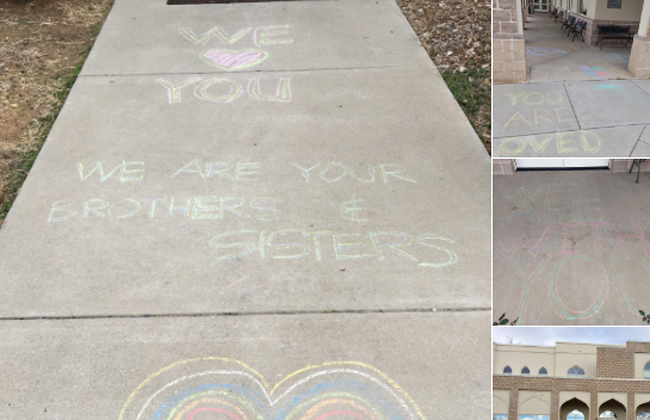 WE
YOU
WE ARE YOUR
BROTHERS &
SISTERS
YOU
ARE
LOVED
YOU